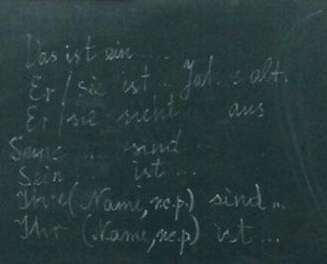 Das ist ein ....
Er / sie ist ... Jahre alt.
Er/sie sieht ... aus
Seine ... sind ...
Sein ... ist ...
Ihre (Name, no.p.) sind ...
Ihr (Name, no.p.) ist ...